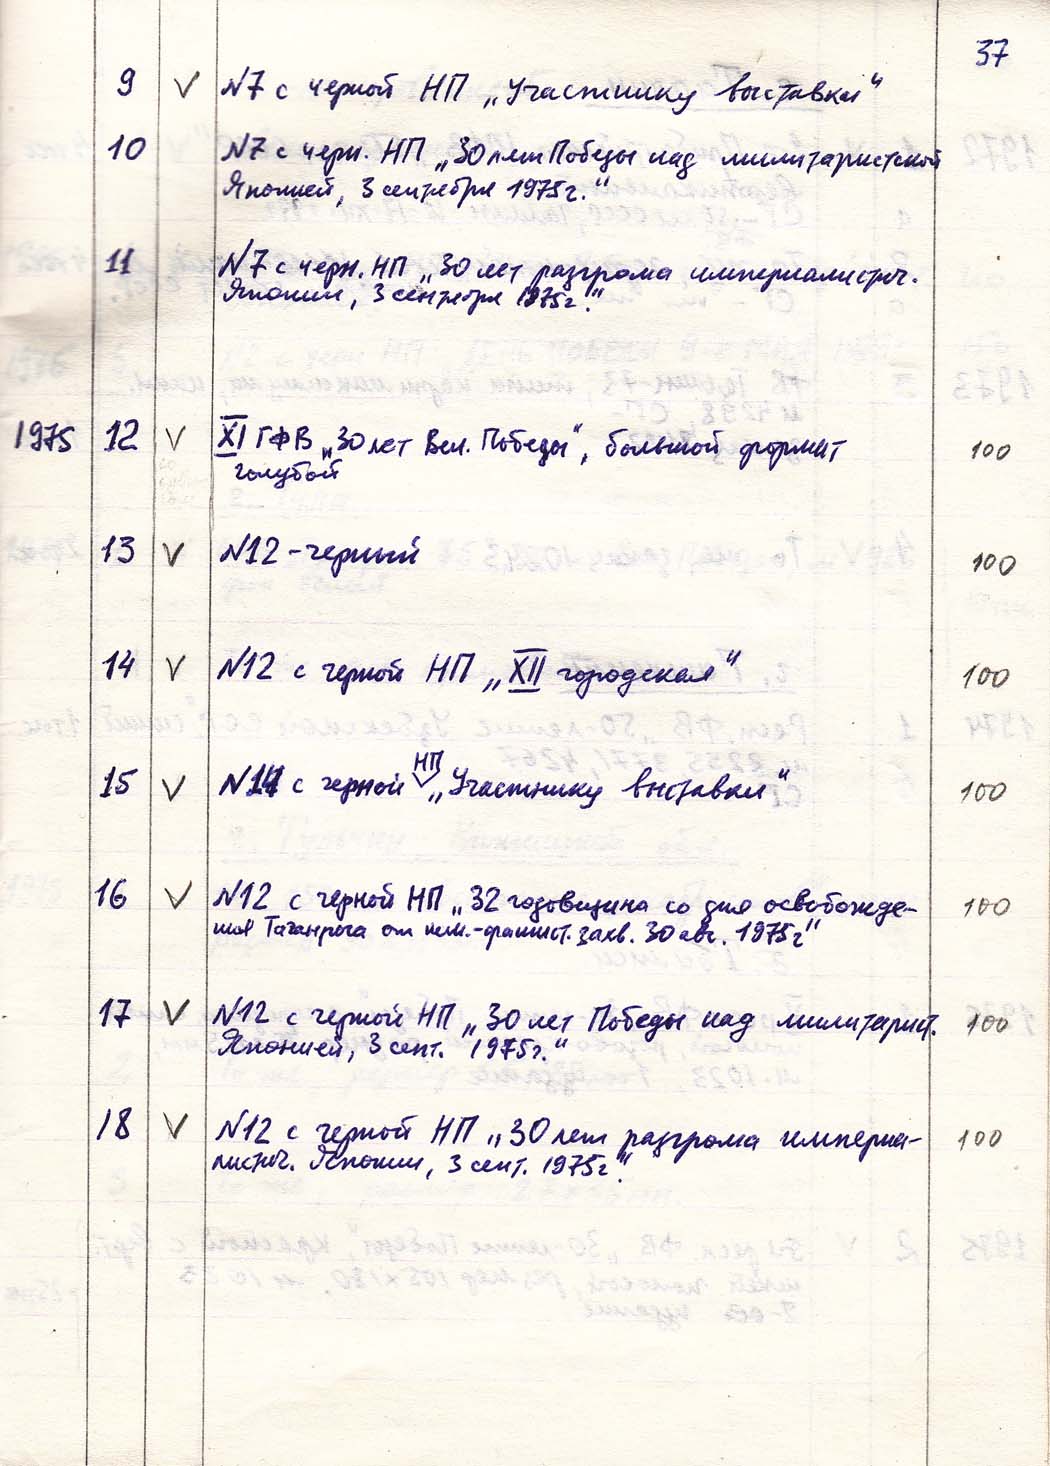 37
9 V N7 с черной НП „Участнику выставки“
10 N7 с черн. НП „30 лет Победы над милитаристской
Японией, 3 сентября 1975г.“
11 N7 с черн. НП „30 лет разгрома империалистич.
Японии, 3 сентября 1975г.“
1975 12 V XI ГФВ „30 лет Вел. Победы“, большой формат 100
голубой
13 V N12 - черный 100
14 V N12 с черной НП „XII городская“ 100
НП
15 V N14 с черной „Участнику выставки“ 100
16 V N12 с черной НП „32 годовщина со дня освобожде- 100
ния Таганрога от нем.-фашист. захв. 30 авг. 1975г“
17 V N12 с черной НП „30 лет Победы над милитарист. 100
Японией, 3 сент. 1975г.“
18 V N12 с черной НП „30 лет разгрома империа- 100
листич. Японии, 3 сент. 1975г.“